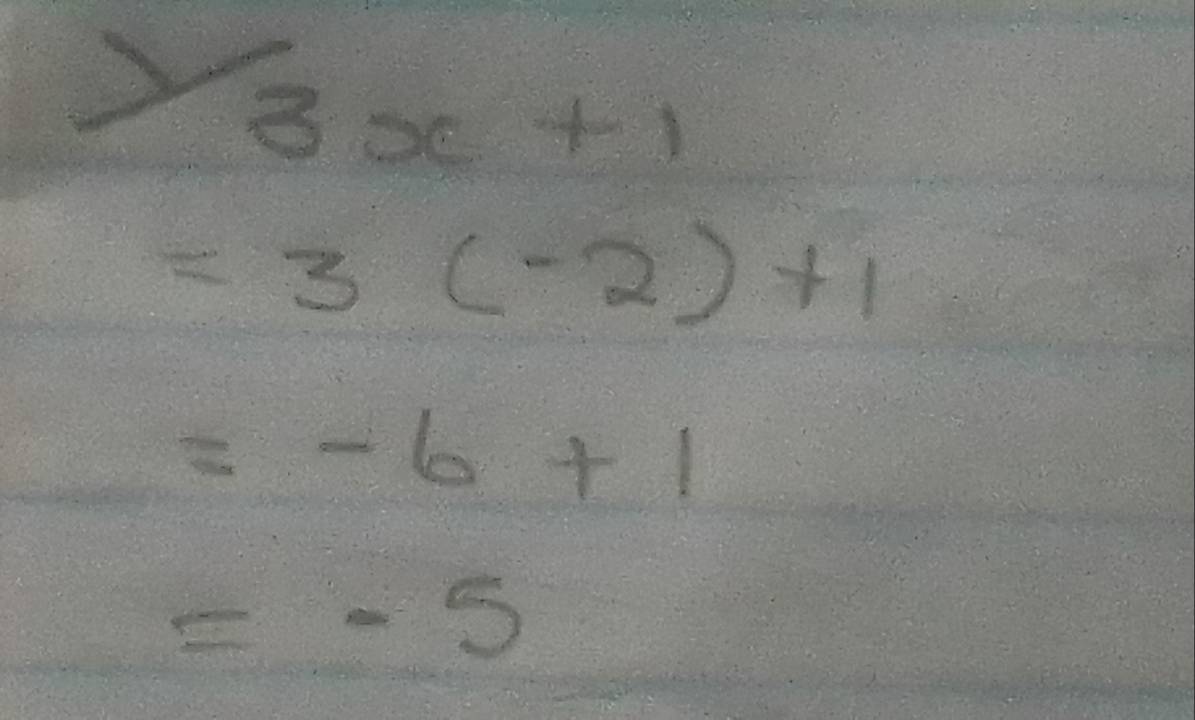 3x + 1
= 3 (-2) + 1
= -6 + 1
= -5